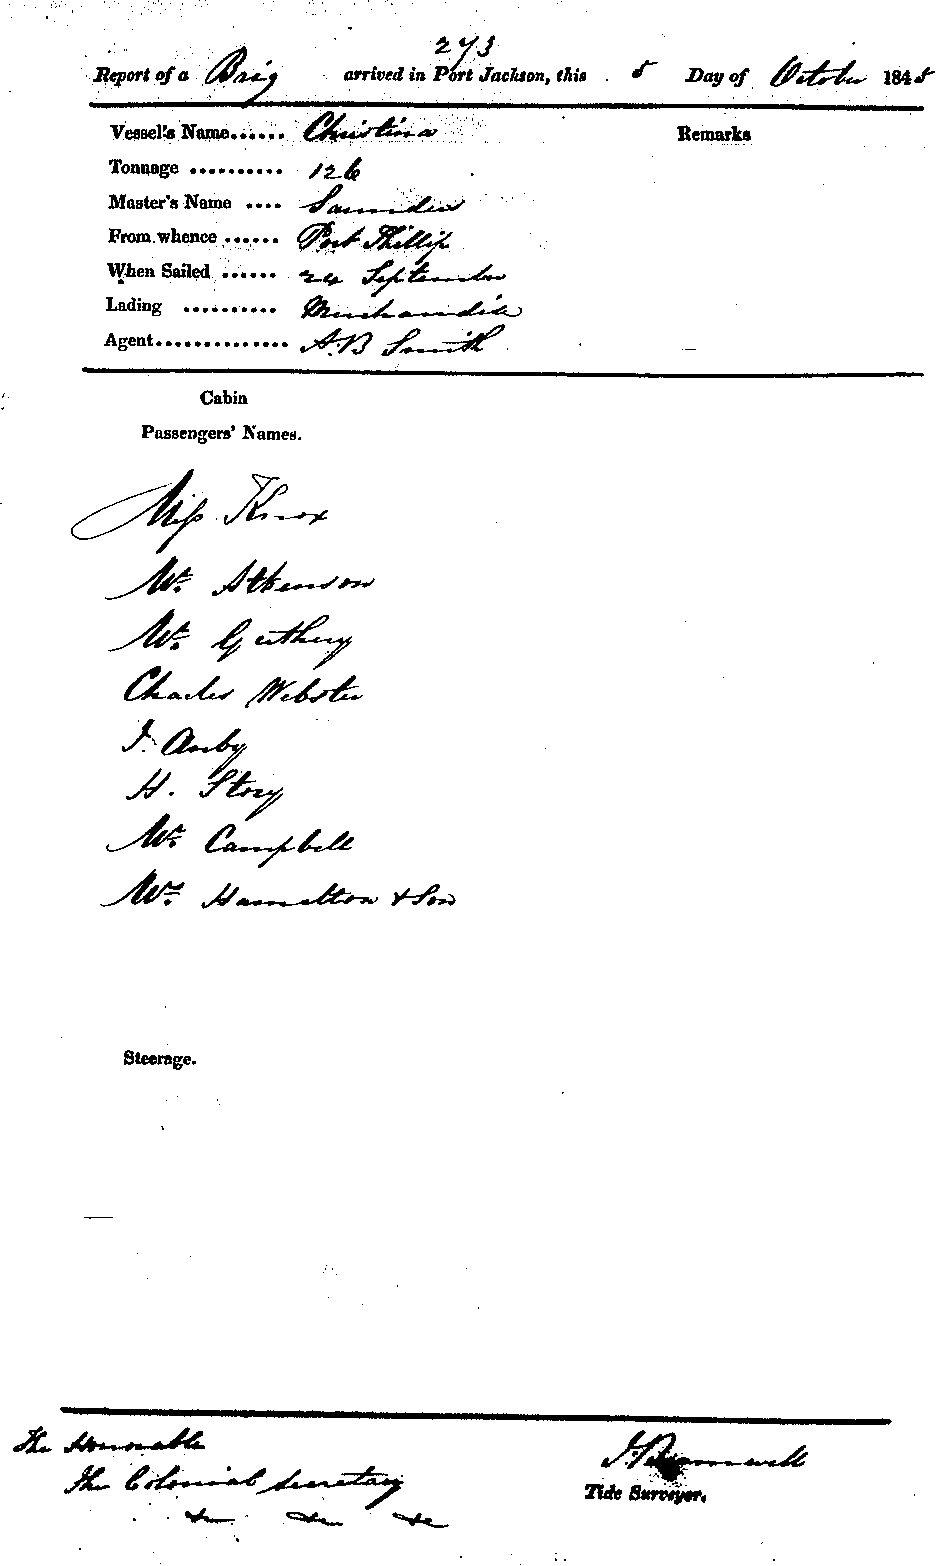 273
Report of a Brig arrived in Port Jackson, this 5 Day of October 1845
Vessel's Name...... Christina
Remarks
Tonnage .......... 126
Master's Name .... Saunders
From whence ...... Port Phillip
When Sailed ...... 24 September
Lading .......... Merchandise
Agent.............. A.B Smith
Cabin
Passengers' Names.
Miss Knox
Mr. Atkenson
Mr. Guthery
Charles Webster
J. Anby
H. Story
Mr. Campbell
Mrs. Hamelton & Son
Steerage.
The Honorable
The Colonial Secretary
&c &c &c
Tide Surveyor.